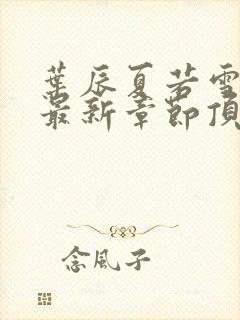 葉辰夏若雪
最新章節頂
念風子